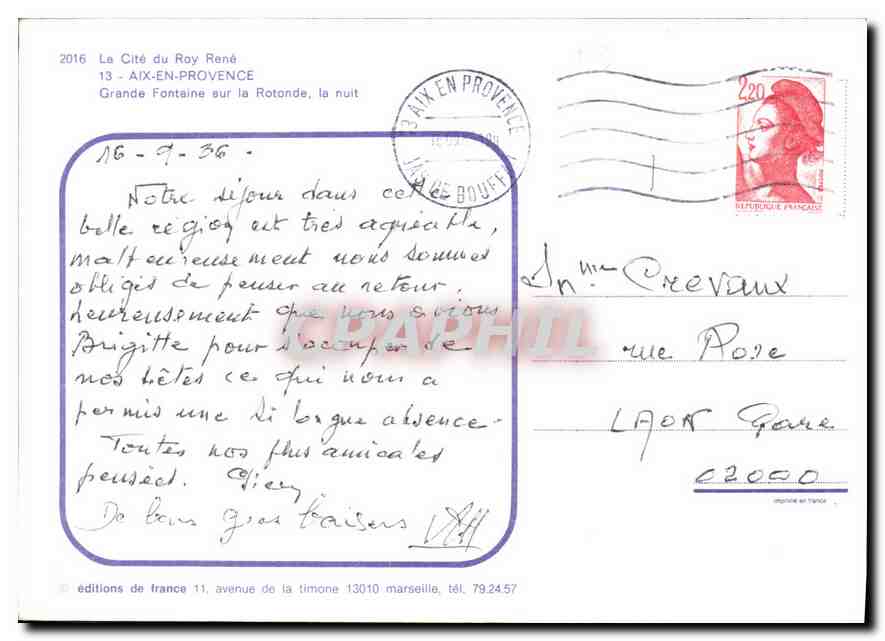 2016 La Cité du Roy René
13 - AIX-EN-PROVENCE
Grande Fontaine sur la Rotonde, la nuit
13 AIX EN PROVENCE
JAS DE BOUFFAN
2,20
REPUBLIQUE FRANÇAISE
16-9-86-
Notre séjour dans cette
belle région est très agréable,
malheureusement nous sommes
obligés de penser au retour,
heureusement que nous avions
Brigitte pour s'occuper de
nos bêtes ce qui nous a
permis une si longue absence-
Toutes nos plus amicales
pensées.
De bons gros baisers
Mme Crevaux
rue Rose
LAON Gare
02000
CPARHIL
imprimé en france
© éditions de france 11, avenue de la timone 13010 marseille, tél. 79.24.57